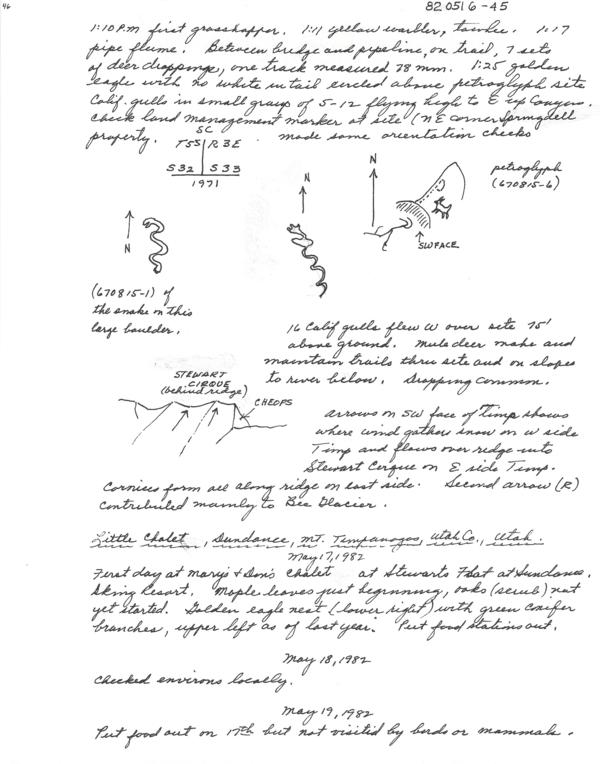 46
820516-45
1:10 P.M. first grasshopper. 1:11 yellow warbler, towhee. 1:17
pipe flume. Between bridge and pipeline, on trail, 7 sets
of deer droppings, one track measured 78 mm. 1:25 golden
eagle with no white in tail circled above petroglyph site
Calif. gulls in small group of 5-12 flying high to E up Canyon.
Check land management marker at site (NE corner Springdell
property. made some orientation checks
SC
T5S R3E
S32 S33
1971
N
N
N
petroglyph
(670815-6)
SW FACE
(670815-1) of
the snake on this
large boulder.
16 Calif gulls flew W over site 75'
above ground. Mule deer make and
maintain trails thru site and on slopes
to river below. Dropping common.
STEWART
CIRQUE
(behind ridge)
CHEOPS
arrows on SW face of Timp shows
where wind gathers snow on W side
Timp and flows over ridge into
Stewart Cirque on E side Timp.
Cornices form all along ridge on east side. Second arrow (R)
contributed mainly to Bee Glacier.
Little Chalet, Sundance, Mt. Timpanogos, Utah Co., Utah.
May 17, 1982
First day at Mary's & Don's Chalet at Stewarts Flat at Sundance.
Skiing Resort. Maple leaves just beginning, oaks (scrub) not
yet started. Golden eagle nest (lower right) with green conifer
branches, upper left as of last year. Put food stations out.
May 18, 1982
Checked environs locally.
May 19, 1982
Put food out on 17th but not visitid by birds or mammals.